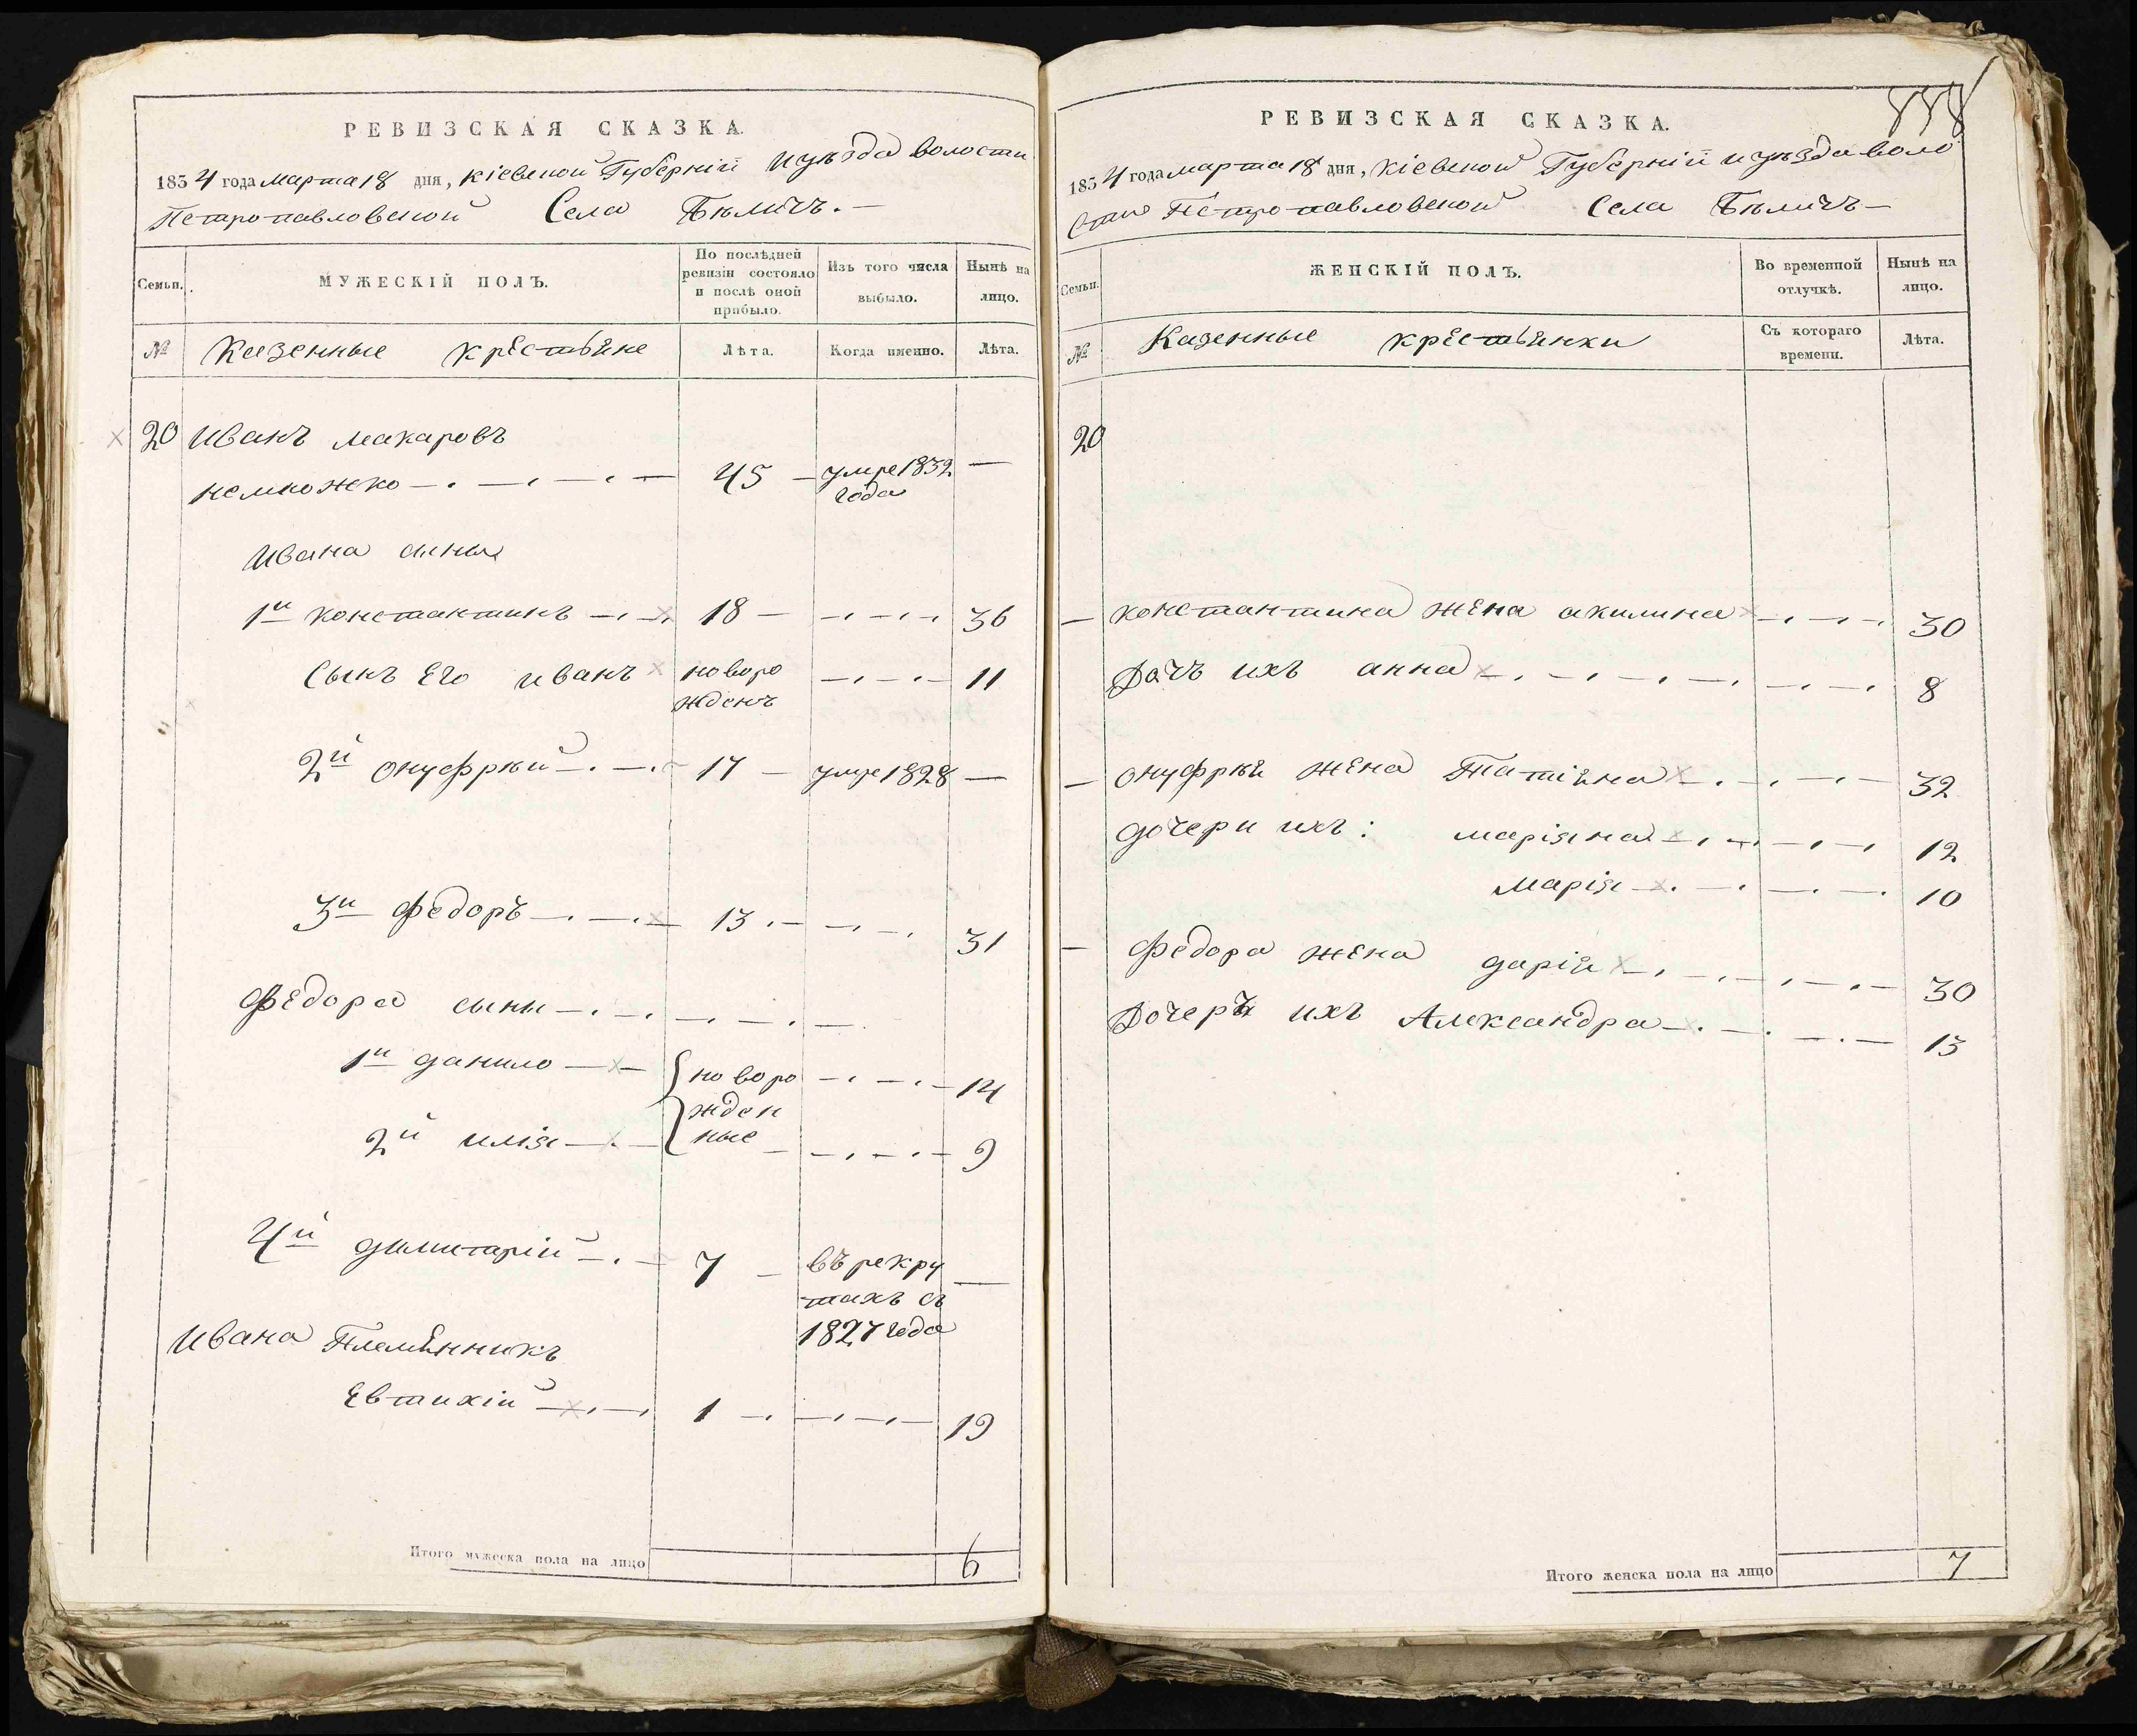 РЕВИЗСКАЯ СКАЗКА.
1834 года марта 18 дня, Кіевской Губерніи и уѣзда волости
Петропавловской Села Бѣличъ. —
Семьи.
МУЖЕСКІЙ ПОЛЪ.
По послѣдней ревизіи состояло и послѣ оной прибыло.
Изъ того числа выбыло.
Нынѣ на лицо.
№
Казенные крестьяне
Лѣта.
Когда именно.
Лѣта.
20 Иванъ Макаровъ
Неможко — 45 — умре 1832 года —
Ивана сыны
1й Константинъ — 18 — 36
Сынъ Его иванъ новорожденъ — 11
2й Онуфрий — 17 — умре 1828 —
3й Федоръ — 13 — 31
Федора сыны —
1й данило — новорожденные — 14
2й илія — 9
4й димитрій — 7 — въ рекрутахъ съ 1827 года —
Ивана Племянникъ
Евтихій — 1 — 19
Итого мужеска пола на лицо 6
РЕВИЗСКАЯ СКАЗКА.
1834 года марта 18 дня, Кіевской Губерніи и уѣзда воло
сти Петропавловской Села Бѣличъ —
Семьи.
ЖЕНСКІЙ ПОЛЪ.
Во временной отлучкѣ.
Нынѣ на лицо.
№
Казенные крестьянки
Съ котораго времени.
Лѣта.
20
— Константина жена акилина — 30
Дочъ ихъ анна — 8
— Онуфрія жена Татіяна — 32
дочери ихъ: маріяна — 12
Марія — 10
— Федора жена дарія — 30
Дочеръ ихъ Александра — 13
Итого женска пола на лицо 7